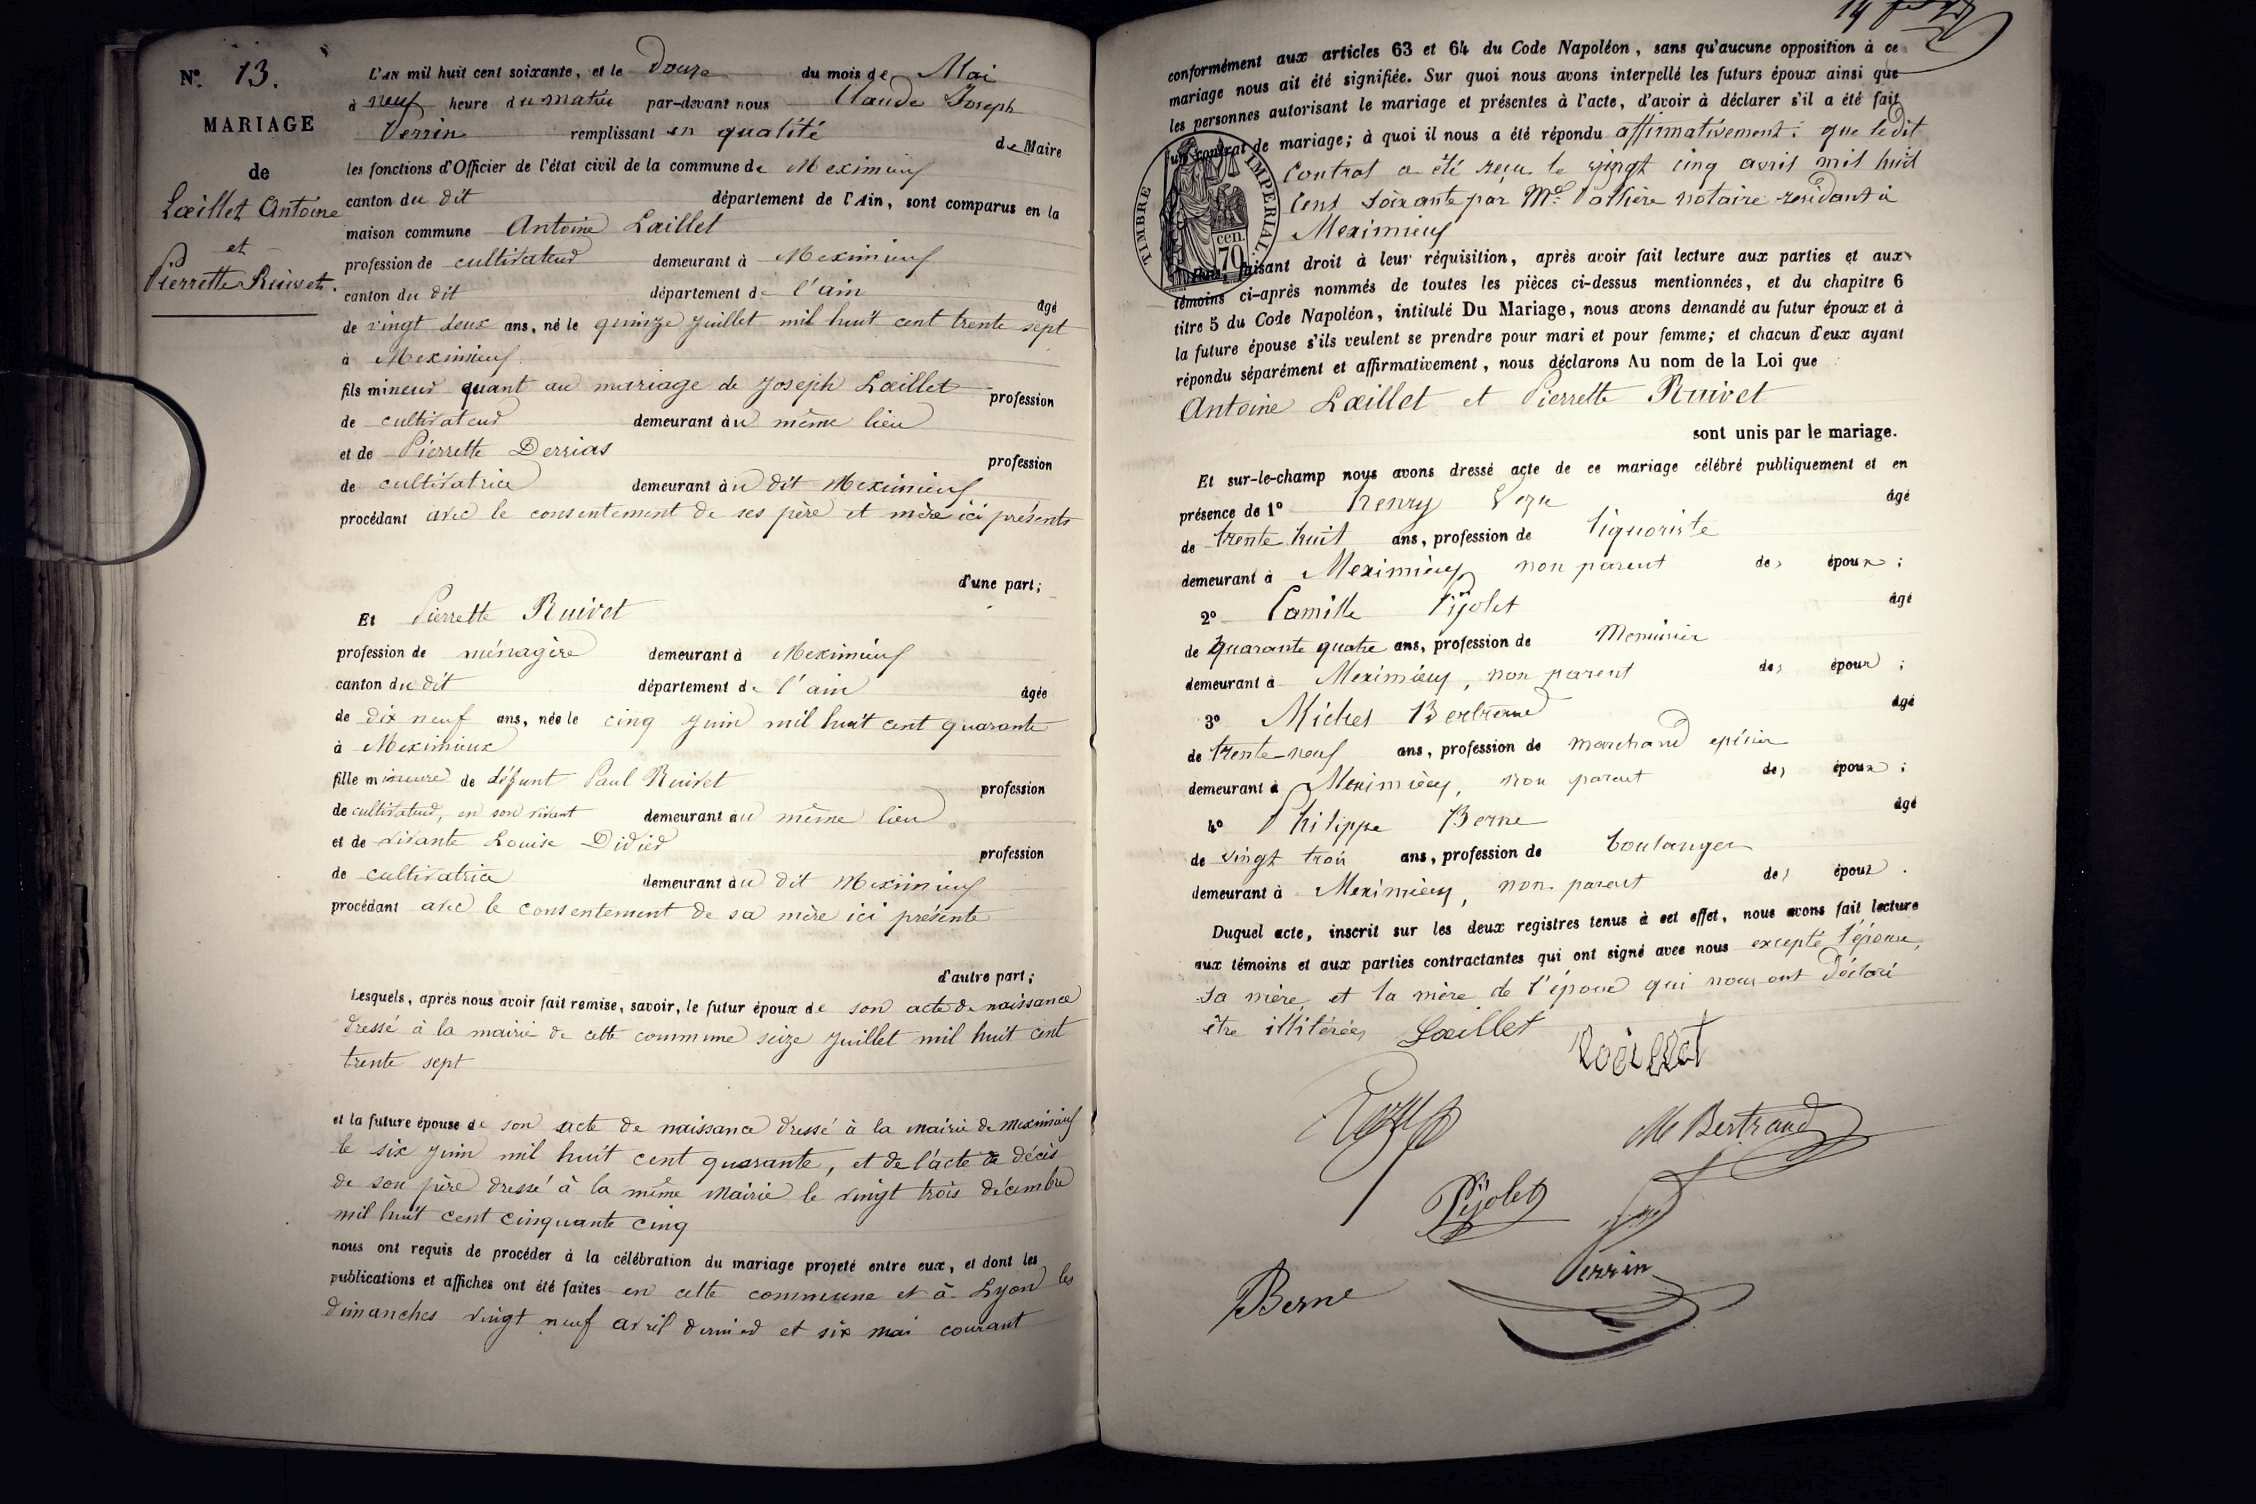 Nº 13.
MARIAGE
de
Lœillet Antoine
et
Pierrette Ruivet.
L'AN mil huit cent soixante, et le Douze du mois de Mai
à neuf heure du matin par-devant nous Claude Joseph
Perrin remplissant en qualité de Maire
les fonctions d'Officier de l'état civil de la commune de Meximieux
canton du dit département de l'Ain, sont comparus en la
maison commune Antoine Lœillet
profession de cultivateur demeurant à Meximieux
canton du dit département de l'ain âgé
de vingt deux ans, né le quinze Juillet mil huit cent trente sept
à Meximieux
fils mineur quant au mariage de Joseph Lœillet profession
de cultivateur demeurant au même lieu
et de Pierrette Derrias profession
de cultivatrice demeurant au dit Meximieux
procédant avec le consentement de ses père et mère ici présents
d'une part;
Et Pierrette Ruivet
profession de ménagère demeurant à Meximieux
canton du dit département de l'ain âgée
de dix neuf ans, née le cinq Juin mil huit cent quarante
à Meximieux
fille mineure de défunt Paul Ruivet profession
de cultivateur, en son vivant demeurant au même lieu
et de vivante Louise Didier profession
de cultivatrice demeurant au dit Meximieux
procédant avec le consentement de sa mère ici présente
d'autre part;
Lesquels, après nous avoir fait remise, savoir, le futur époux de son acte de naissance
dressé à la mairie de cette commune seize Juillet mil huit cent
trente sept
et la future épouse de son acte de naissance dressé à la mairie de Meximieux
le six Juin mil huit cent quarante, et de l'acte de décès
de son père dressé à la même Mairie le vingt trois décembre
mil huit cent cinquante cinq
nous ont requis de procéder à la célébration du mariage projeté entre eux, et dont les
publications et affiches ont été faites en cette commune et à Lyon les
dimanches vingt neuf avril dernier et six mai courant
conformément aux articles 63 et 64 du Code Napoléon, sans qu'aucune opposition à ce
mariage nous ait été signifiée. Sur quoi nous avons interpellé les futurs époux ainsi que
les personnes autorisant le mariage et présentes à l'acte, d'avoir à déclarer s'il a été fait
un contrat de mariage; à quoi il nous a été répondu affirmativement: que le dit
Contrat a été reçu le vingt cinq avril mil huit
Cent soixante par Me. notaire residant à
Meximieux
TIMBRE IMPERIAL
70 cen.
faisant droit à leur réquisition, après avoir fait lecture aux parties et aux
témoins ci-après nommés de toutes les pièces ci-dessus mentionnées, et du chapitre 6
titre 5 du Code Napoléon, intitulé Du Mariage, nous avons demandé au futur époux et à
la future épouse s'ils veulent se prendre pour mari et pour femme; et chacun d'eux ayant
répondu séparément et affirmativement, nous déclarons Au nom de la Loi que
Antoine Lœillet et Pierrette Ruivet
sont unis par le mariage.
Et sur-le-champ nous avons dressé acte de ce mariage célébré publiquement et en
présence de 1º henry âgé
de trente huit ans, profession de liquoriste
demeurant à Meximieux non parent des époux;
2º Camille Pijolet âgé
de quarante quatre ans, profession de Menuisier
demeurant à Meximieux, non parent des époux;
3º Michel Bertrand âgé
de trente-neuf ans, profession de marchand epicier
demeurant à Meximieux, non parent des époux;
4º Philippe Berne âgé
de vingt trois ans, profession de boulanger
demeurant à Meximieux, non parent des époux.
Duquel acte, inscrit sur les deux registres tenus à cet effet, nous avons fait lecture
aux témoins et aux parties contractantes qui ont signé avec nous excepté l'épouse,
sa mère, et la mère de l'époux qui nous ont déclaré
être illitérées Lœillet Loeillet
M Bertrand
Pijolet
Berne
Perrin